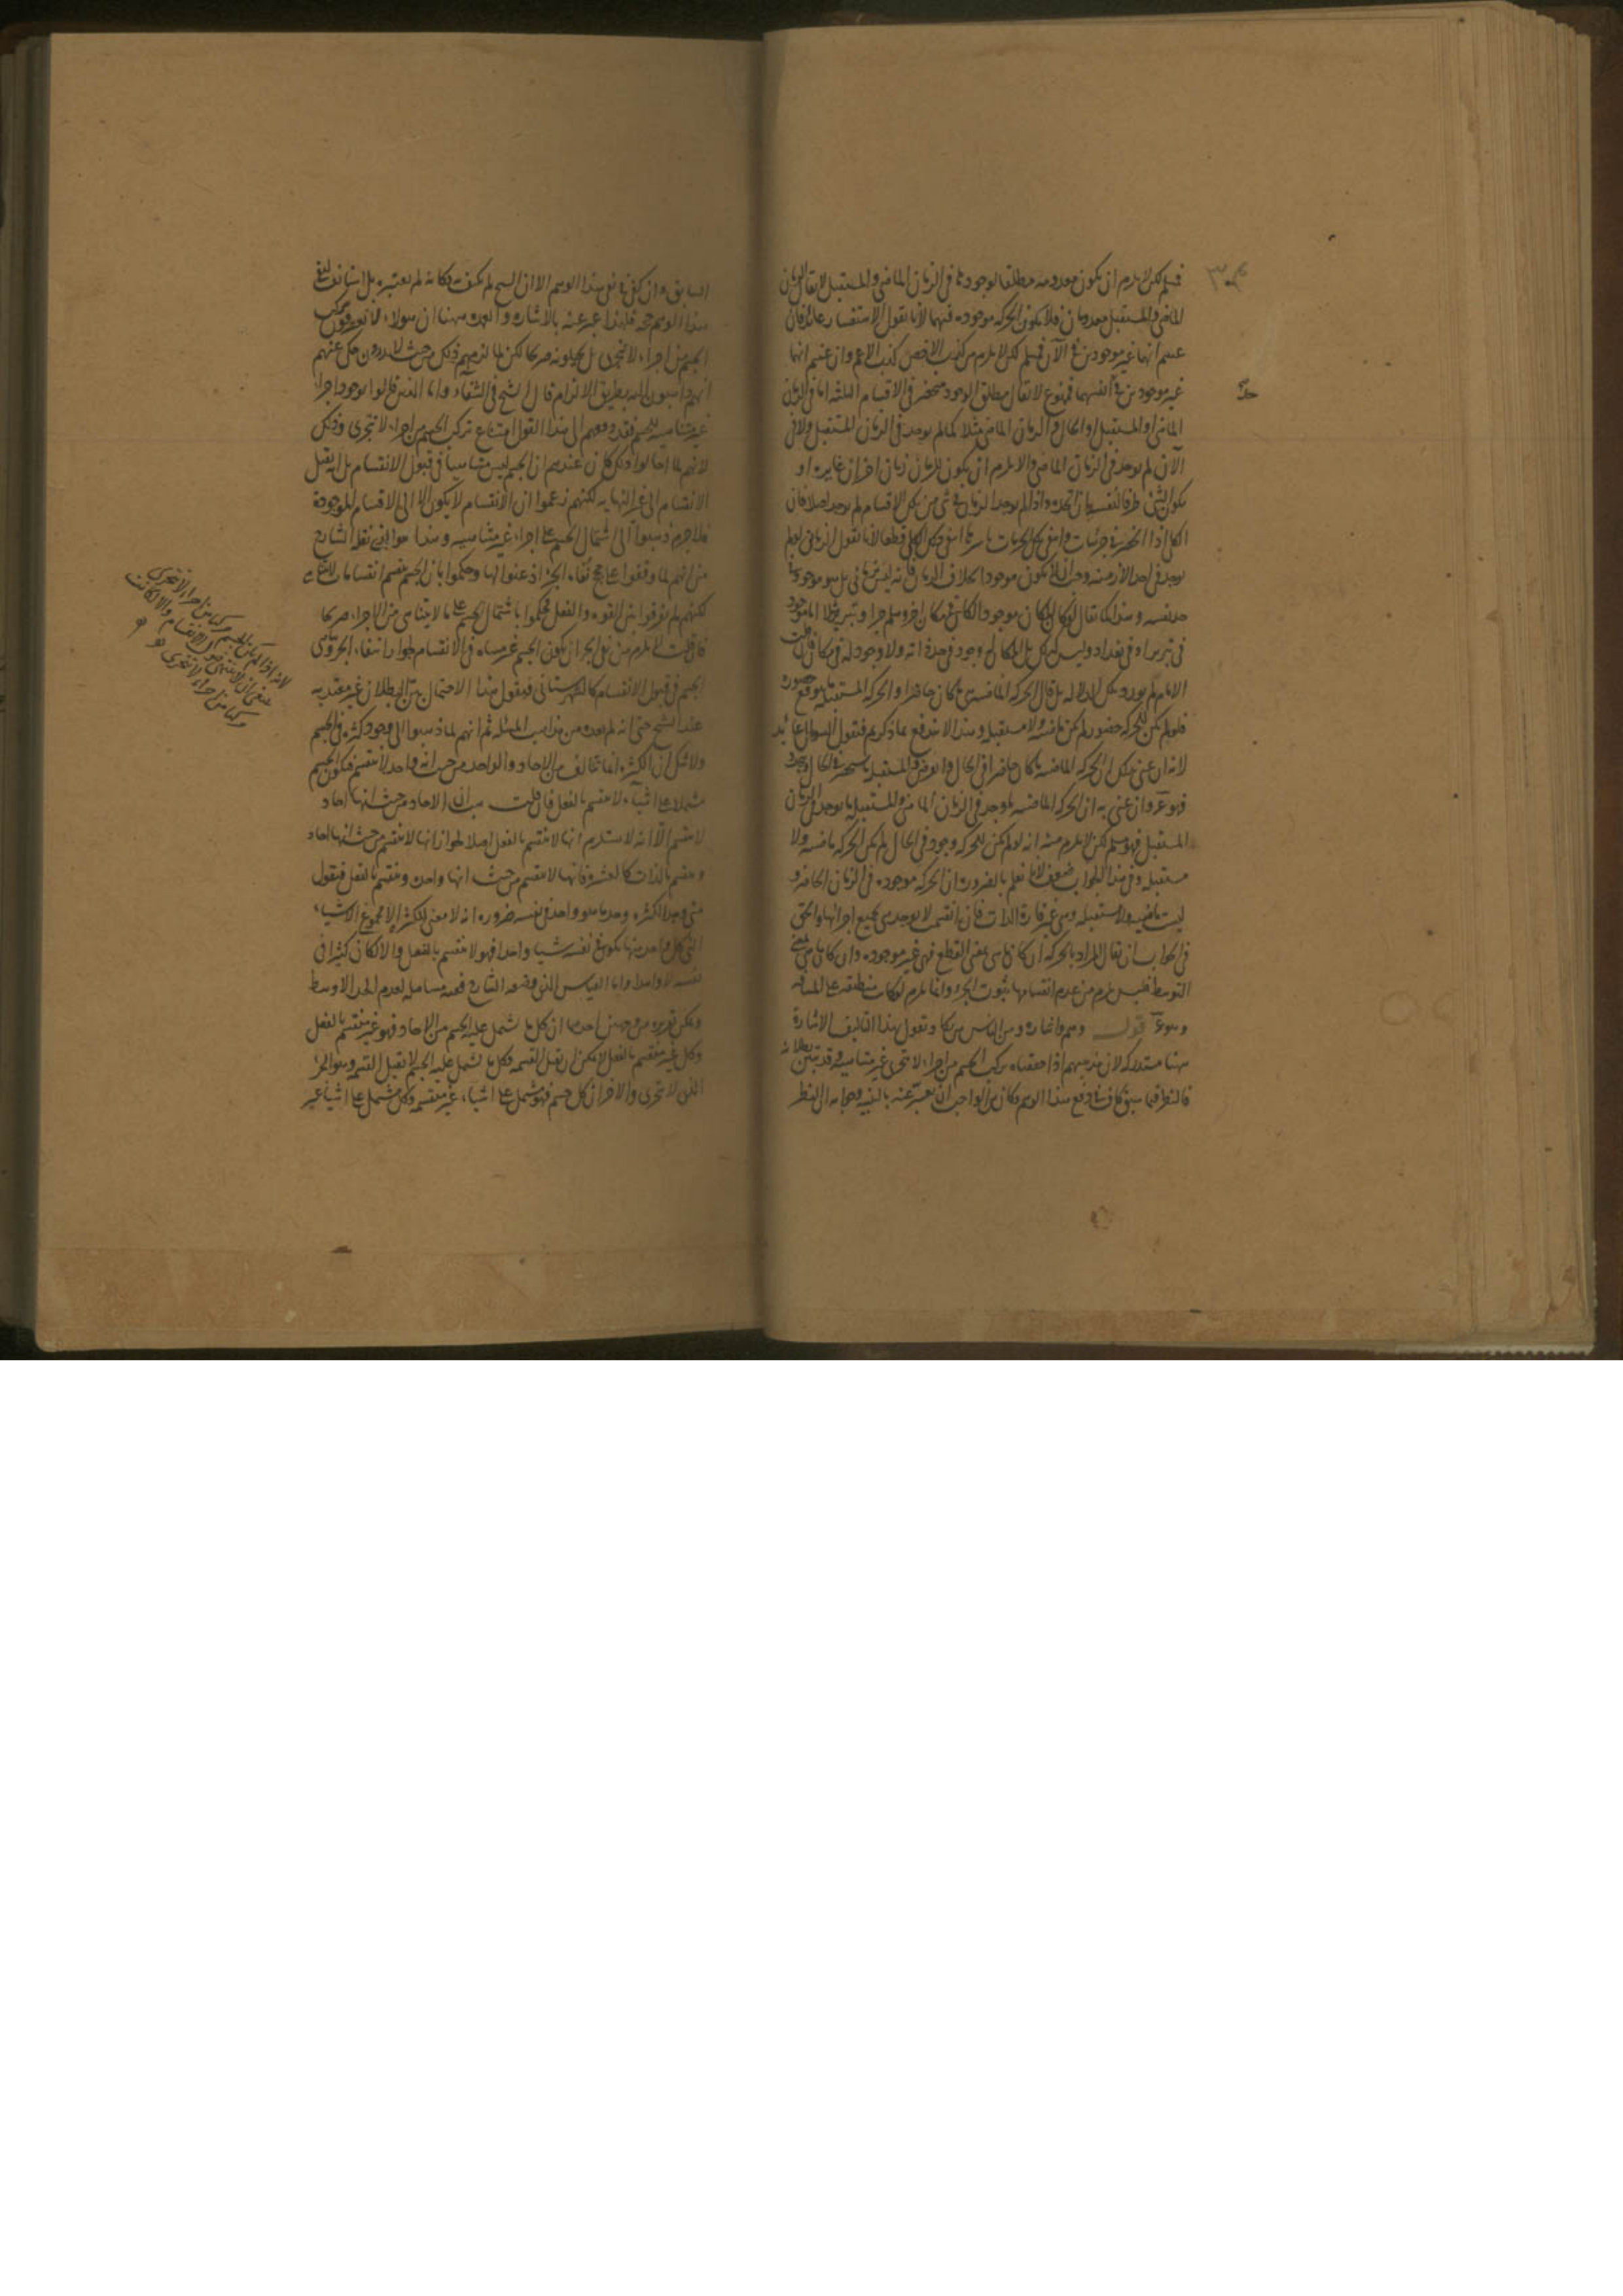 فمسلم لكن لا يلزم ان يكون معدومه مطلقا لوجودها في الزمان الماضي والمستقبل لا يقال الزمان
الماضي والمستقبل معدومان فلا يكون الحركه موجوده فيهما لانا نقول الاستفسار عائد فان
عنيتم انهما غير موجودين في الآن فمسلم لكن لا يلزم من كذب الاخص كذب الاعم وان عنيتم انهما
غير موجودين في انفسهما فممنوع لا يقال مطلق الوجود منحصر في الاقسام الثلثه اما في الزمان
الماضي او المستقبل او الحال والزمان الماضي مثلا كما لم يوجد في الزمان المستقبل ولا في
الآن لم يوجد في الزمان الماضي والا يلزم ان يكون للزمان زمان اخر ان غايره او
يكون الشئ ظرفا لنفسه ان اتحد به واذا لم يوجد الزمان في شئ من تلك الاقسام لم يوجد اصلا فان
الكلي اذا انحصر في جزئيات وانتفى تلك الجزئيات باسرها انتفى ذلك الكلي قطعا لانا نقول الزماني لو لم
يوجد في احد الأزمنه وجب ان لا يكون موجودا بخلاف الزمان فانه ليس بزماني بل هو موجود في
حد نفسه وهذا كما يقال لو كان المكان موجودا لكان في مكان اخر وهلم جرا وتبريز مثلا اما موجود
في تبريز او في بغداد وليس كذلك بل المكان له وجود في حد ذاته ولا وجود له في مكان فان قلت
الامام لم يورد تلك الدلاله بل قال الحركه الماضيه هي ما كان حاضرا والحركه المستقبله ما يتوقع حضوره
فلو لم يكن للحركه حضور لم يكن ماضيه ولا مستقبله وهذا لا يندفع بما ذكرتم فنقول السؤال عائد
لانه ان عنى بذلك ان الحركه الماضيه ما كان حاضرا في الحال وانعرض والمستقبله ما سيحضر في الحال
فهو مم وان عنى به ان الحركه الماضيه ما وجد في الزمان الماضي والمستقبله ما يوجد في الزمان
المستقبل فهو مسلم لكن لا يلزم منه انه لو لم يكن للحركه وجود في الحال لم يكن الحركه ماضيه ولا
مستقبله وفي هذا الجواب ضعف لانا نعلم بالضروره ان الحركه موجوده في الزمان الحاضر و
ليست ماضيه ولا مستقبله وهي غير قارة الذات فان انقسمت لا يوجد هي بجميع اجزائها والحق
في الجواب ان يقال المراد بالحركه ان كان ما هي بمعنى القطع فهي غير موجوده وان كان ما هي بمعنى
التوسط فليس يلزم من عدم انقسامها ثبوت الجزء وانما يلزم لو كانت منطبقه على المسافه
وهو مم قوله وهم واشاره ومن الناس من يكاد يقول بهذا التاليف الاشارة
ههنا مستدركه لان مذهبهم اذا حققناه تركب الجسم من اجزاء لا تتجزى غير متناهيه وقد تبين بطلانه
فالنظر فيما سبق كاف في دفع هذا الوهم وكان من الواجب ان يعبر عنه بالتنبيه وجوابه ان النظر
السابق وان كفى في نفي هذا الوهم الا ان الشيخ لم يكتف به فكانه لم يعتبره بل استانف لنفي
هذا الوهم حجه فلهذا عبر عنه بالاشاره والعمده ههنا ان هؤلاء لا يعترفون بتركب
الجسم من اجزاء لا تتجزى بل يحيلونه صريحا لكن لما لزمهم ذلك من حيث لا يدرون حكى عنهم
انهم ذاهبون اليه بطريق الالزام قال الشيخ في الشفاء واما الذين قالوا بوجود اجزاء
غير متناهيه للجسم فقد دفعهم الى هذا القول امتناع تركب الجسم من اجزاء لا تتجزى وذلك
لانهم لما احالوا ذلك كان عندهم ان الجسم ليس متناهيا في قبول الانقسام بل انه يقبل
الانقسام الى غير النهايه لكنهم زعموا ان الانقسام لا يكون الا الى الاقسام الموجودة
فلا جرم ذهبوا الى اشتمال الجسم على اجزاء غير متناهيه وهذا موافق لما نقله الشارح
من انهم لما وقفوا على حجج نفاة الجزء اذعنوا لها وحكموا بان الجسم ينقسم انقسامات لا تتناهى
لكنهم لم يفرقوا بين القوه والفعل فحكموا باشتمال الجسم على ما لا يتناهى من الاجزاء صريحا
فان قلت لم يلزم من نفي الجزء ان يكون الجسم غير متناه في الانقسام لجواز انتفاء الجزء وتناهي
الجسم في قبول الانقسام كالشهرستاني فنقول هذا الاحتمال بين البطلان غير معتد به
عند الشيخ حتى انه لم يعده من مذاهب المسئله ثم انهم لما ذهبوا الى وجود كثره في الجسم
ولا شك ان الكثره انما تتالف من الاحاد والواحد من حيث انه واحد لا ينقسم فيكون الجسم
مشتملا على اشياء لا ينقسم بالفعل فان قلت هب ان الاحاد من حيث انها احاد
لا ينقسم الا انه لا يستلزم انها لا ينقسم بالفعل اصلا لجواز انها لا ينقسم من حيث انها احاد
وينقسم بالذات كالعشره فانها لا ينقسم من حيث انها واحده وينقسم بالفعل فنقول
متى وجد الكثره وجد ما هو واحد في نفسه ضروره انه لا معنى للكثره الا مجموع الاشياء
التي كل واحد منها يكون في نفسه شيئا واحدا فهو لا ينقسم بالفعل والا لكان كثيرا في
نفسه لا واحدا واما القياس الذي وضعه الشارح ففيه مساهله لعدم الحد الاوسط
ويمكن تقريره من وجهين احدهما ان كل ما يشتمل عليه الجسم من الاحاد فهو غير منقسم بالفعل
وكل غير منقسم بالفعل لا يمكن ان يقبل القسمه فكل ما يشتمل عليه الجسم لا يقبل القسمه وهو الجزء
الذي لا يتجزى والاخر ان كل جسم فهو مشتمل على اشياء غير منقسمه وكل مشتمل على اشياء غير
لانه اذا لم يكن الجسم مركبا من اجزاء لا تتجزى